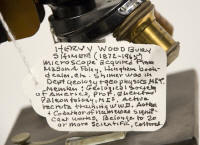 HERVEY WOODBURY
SHIMER (1872-1965)
MICROSCOPE ACQUIRED FROM
MASON & FOLEY, HINGHAM BOOK-
DEALER, ETC. SHIMER WAS IN
DEPT GEOLOGY + GEOPHYSICS MIT.
MEMBER: GEOLOGICAL SOCIETY
OF AMERICA, PROF. EMERITUS
PALEONTOLOGY, MIT. ACTIVE
TRAINING WWII. AUTHOR
+ COAUTHOR OF NUMEROUS SIGNIFI-
CANT WORKS, BELONGS TO 20
OR MORE SCIENTIFIC,